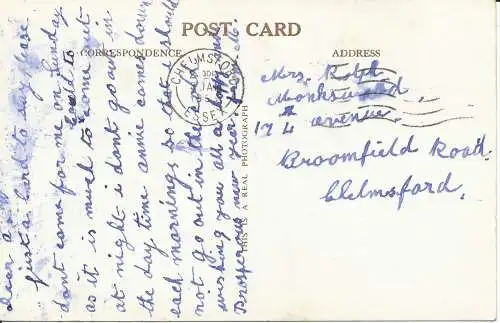 POST CARD
CORRESPONDENCE
ADDRESS
CHELMSFORD
ESSEX
dear
just a card to day please
dont come for me on Sunday
as it is much to come out
at night i dont go out in
the day time annie comes down
each mornings so that i should
not go out in the
wishing you all a happy
Prosperous new year from
THIS IS A REAL PHOTOGRAPH
Mrs.
Monkswood
174 avenue
Broomfield Road.
Chelmsford.